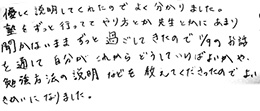 優しく説明してくれたのでよく分かりました。
塾をずっと行っててやり方とか先生とかにあまり
聞かないままずっと過ごしてきたので11/9のお話
を通して自分がこれからどうしていけばよいかや、
勉強方法の説明などを教えてくださったのでよい
きかいになりました。